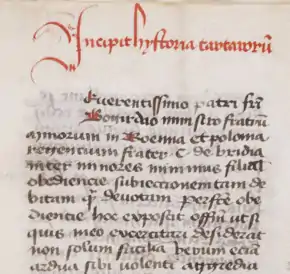 Incipit hystoria tartarorū
Reverentissimo patri frī
Boguslao ministro fratrū
minorum in Boemia et polonia
Frater C. de bridia
inter minores minimus filialē
obediencie subiectionem tam de
bitam q̄ devotam perfecte obe
diencie hoc exposcit offm ut si
quis meo exercitari desiderat
non solum facilia verum eciā
ardua sibi violenti aggredia